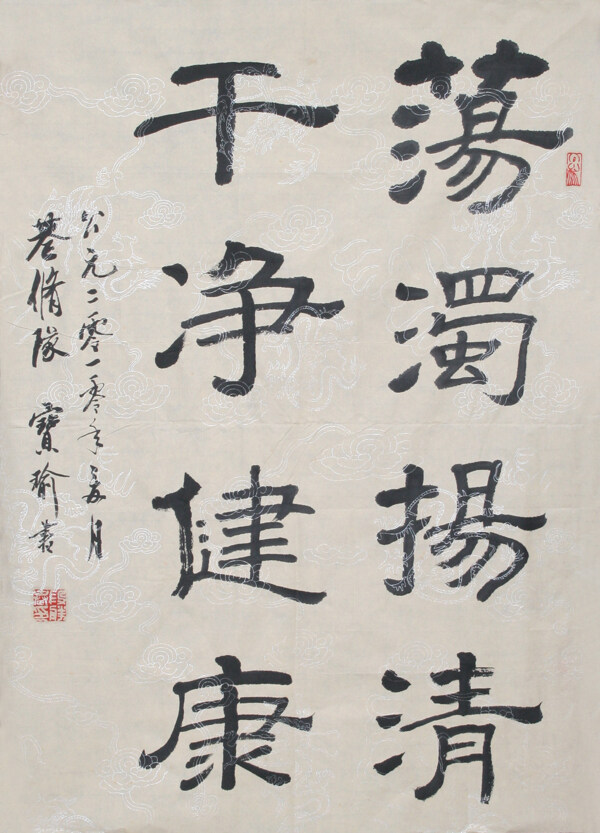 蕩濁揚清
干净健康
公元二零一零年五月
基脩隊 寶瑜書